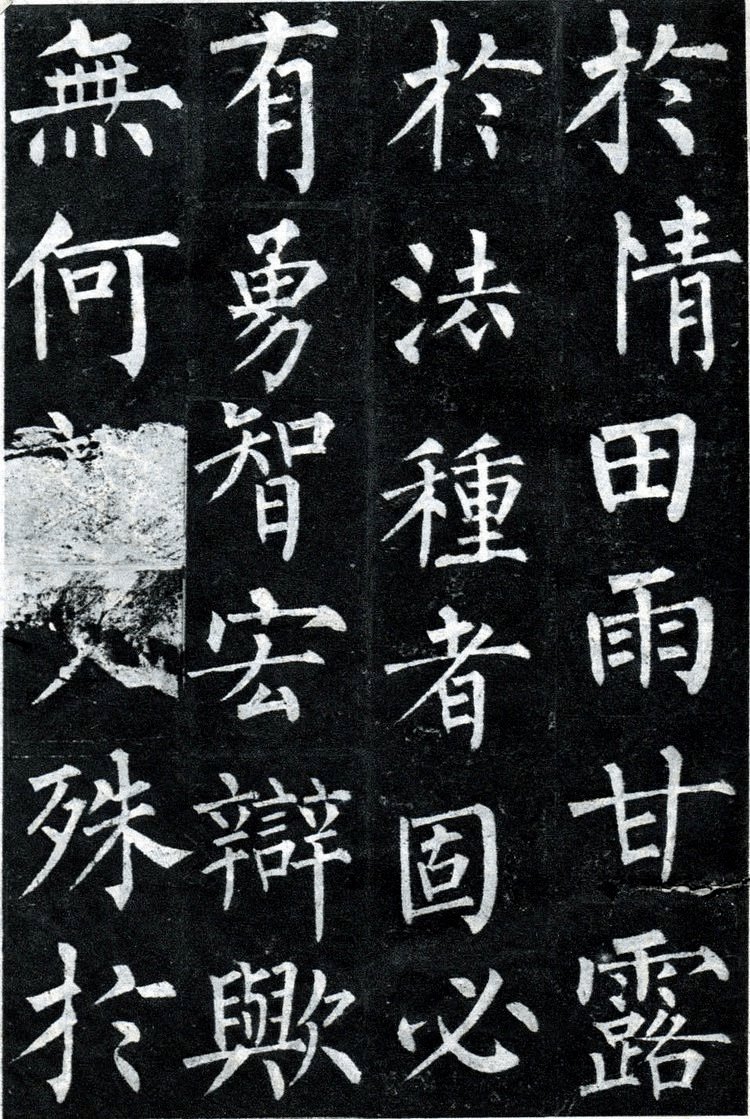 於情田雨甘露
於法種者固必
有勇智宏辯歟
無何殊於